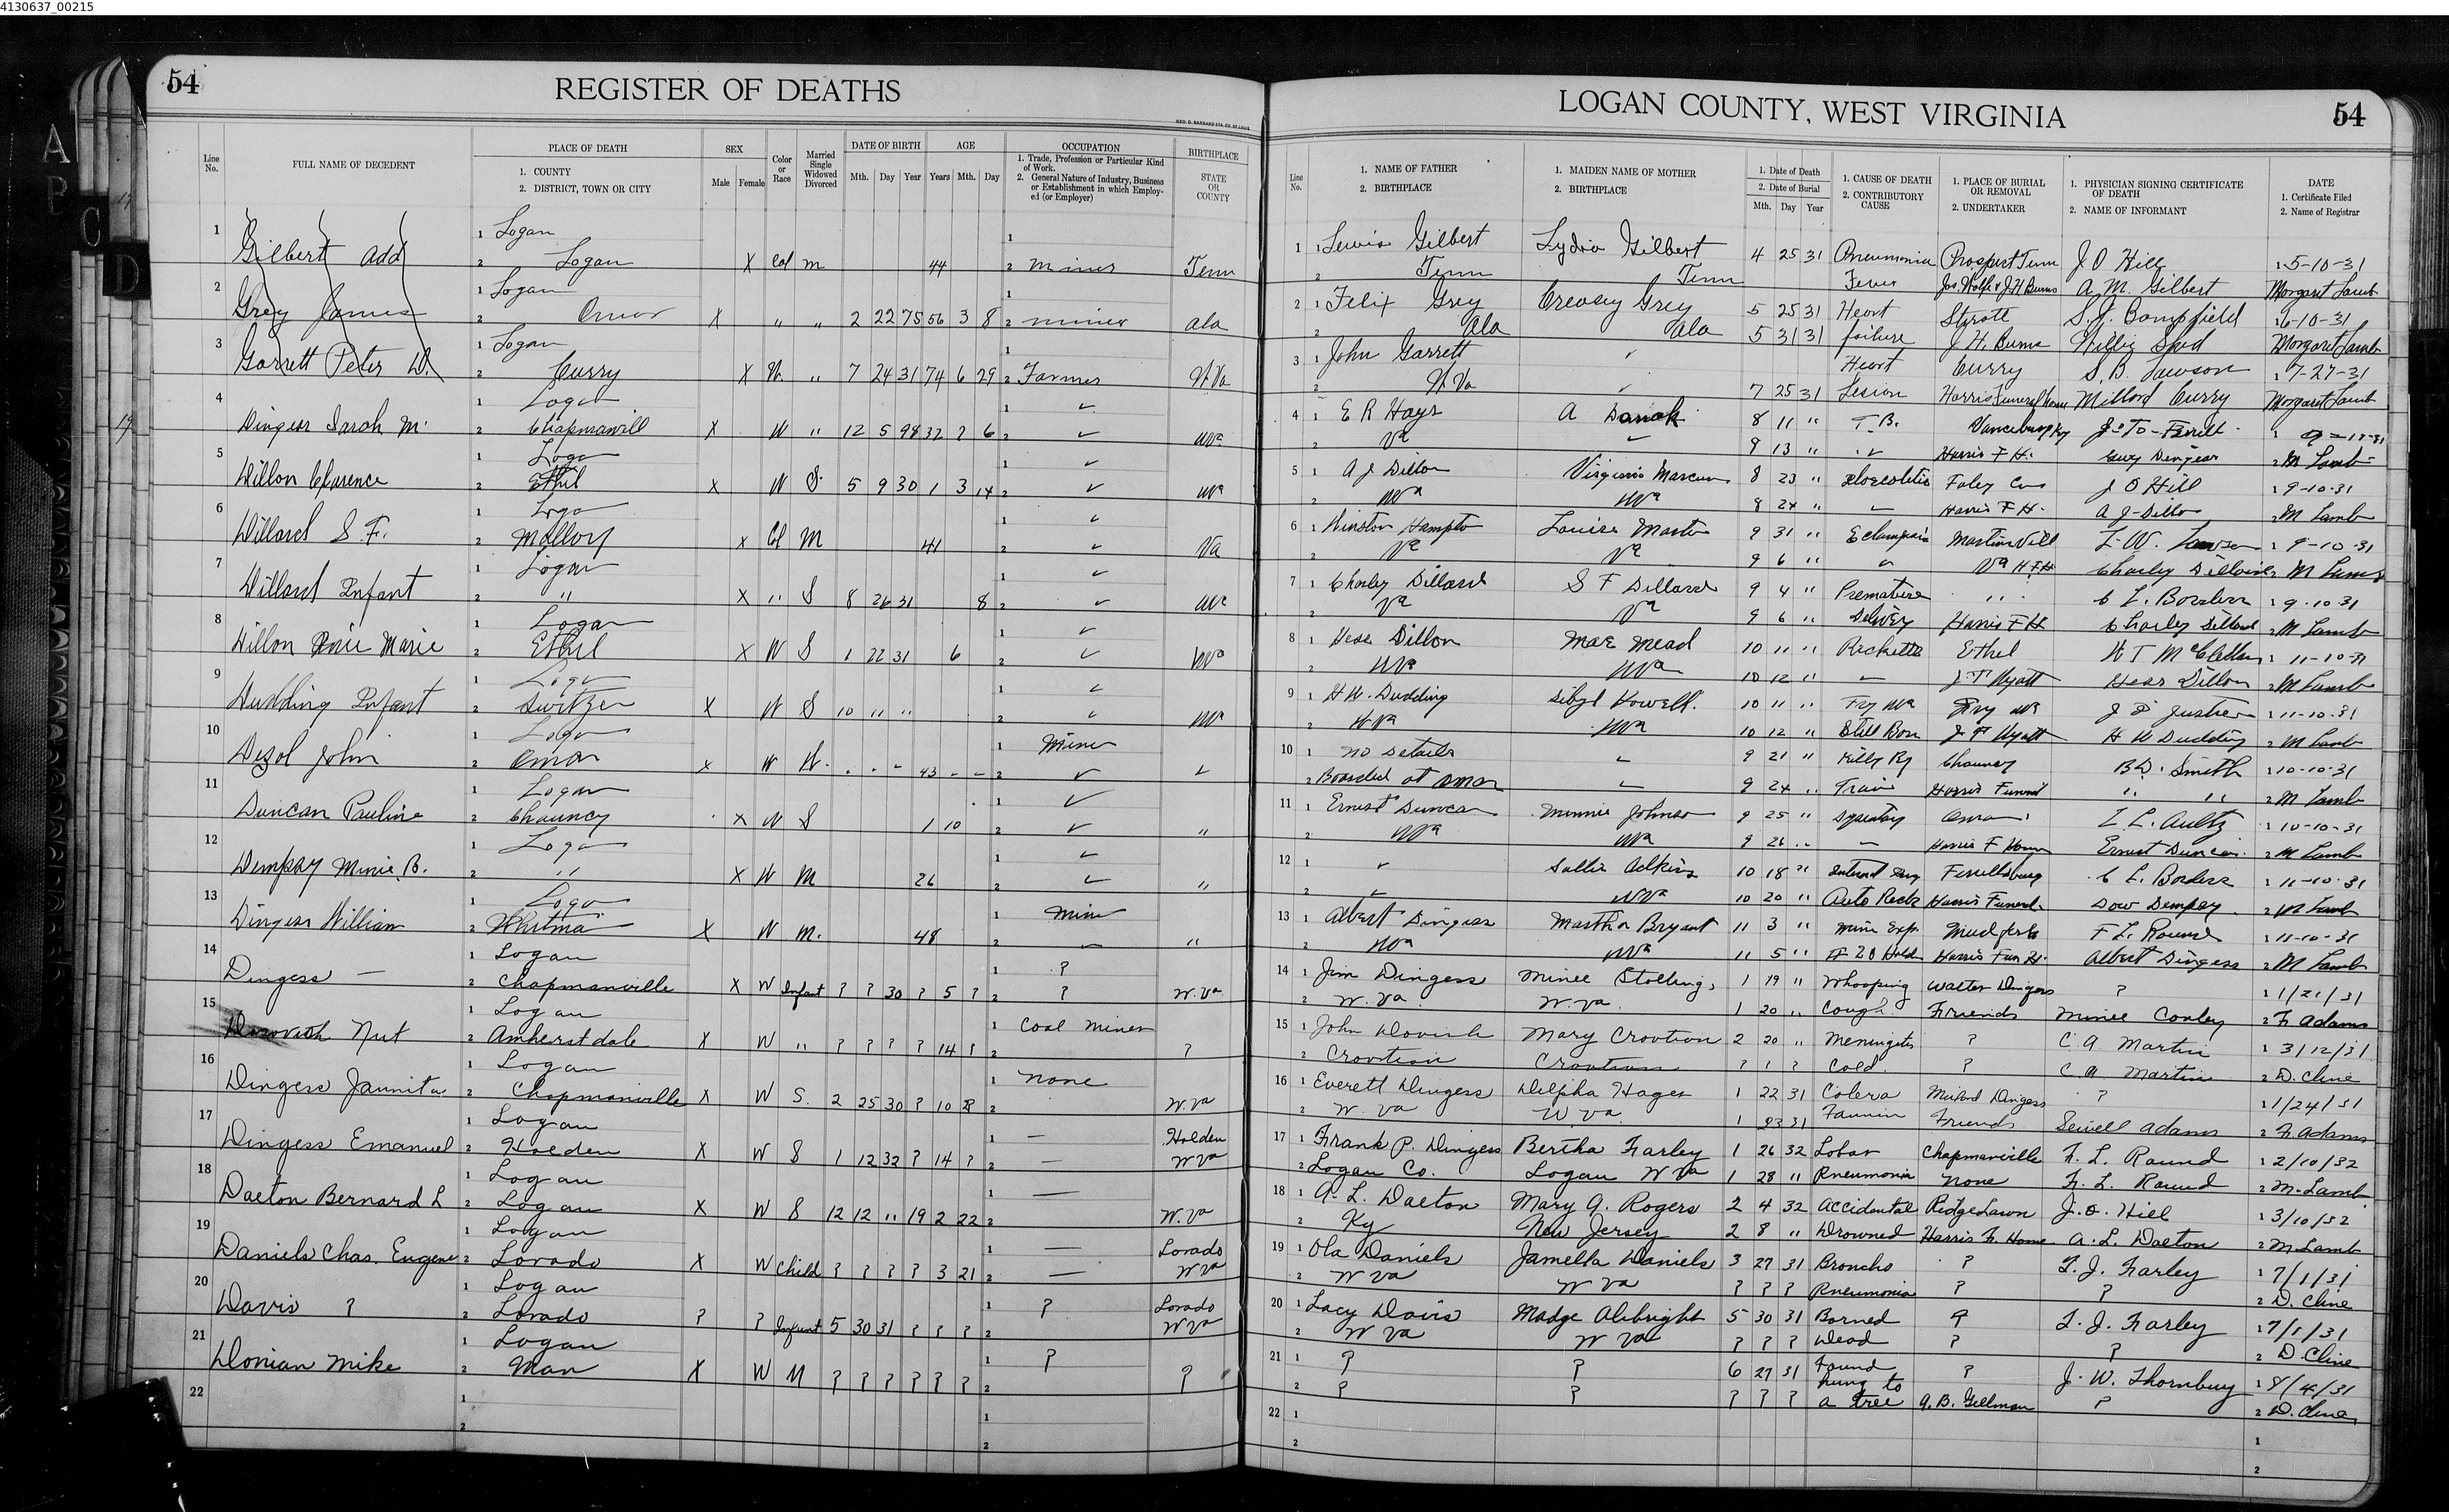 4130637_00215
54
REGISTER OF DEATHS
Line No.
FULL NAME OF DECEDENT
PLACE OF DEATH
1. COUNTY
2. DISTRICT, TOWN OR CITY
SEX
Male Female
Color or Race
Married Single Widowed Divorced
DATE OF BIRTH
Mth. Day Year
AGE
Years Mth. Day
OCCUPATION
1. Trade, Profession or Particular Kind of Work.
2. General Nature of Industry, Business or Establishment in which Employed (or Employer)
BIRTHPLACE
STATE OR COUNTY
1 Gilbert Add 1 Logan 2 Logan X Col m 44 2 miner Tenn
2 Grey James 1 Logan 2 Omar X " " 2 22 75 56 3 8 2 miner Ala
3 Garrett Peter D. 1 Logan 2 Curry X W. " 7 24 31 74 6 29 2 Farmer W Va
4 Dingess Sarah M. 1 Logan 2 Chapmanvill X W " 12 5 98 32 2 6 wva
5 Dillon Clarence 1 Logan 2 Ethil X W S. 5 9 30 1 3 14 wva
6 Dillard S. F. 1 Logan 2 Mallory X Col M 41 Va
7 Dillard Infant 1 Logan 2 " X " S 8 26 31 8 wva
8 Dillon Marie 1 Logan 2 Ethil X W S 1 22 31 6 wva
9 Dudding Infant 1 Logan 2 Switzer X W S 10 11 " wva
10 John 1 Logan 2 Omar X W W. 43 1 Miner
11 Duncan Pauline 1 Logan 2 Chauncy X W S 1 10 "
12 Dempsy Minie B. 1 Logan 2 " X W M 26 "
13 Dingess William 1 Logan 2 Whitman X W M. 48 1 mine "
14 Dingess — 1 Logan 2 Chapmanville X W Infant ? ? 30 ? 5 ? 1 ? 2 ? W. Va.
15 Nut 1 Logan 2 Amherstdale X W " ? ? ? ? 14 ? 1 Coal miner ?
16 Dingess Jaunita 1 Logan 2 Chapmanville X W S. 2 25 30 ? 10 8 1 none W. Va
17 Dingess Emanuel 1 Logan 2 Holden X W S 1 12 32 ? 14 ? 1 — 2 — Holden W Va
18 Daeton Bernard L 1 Logan 2 Logan X W S 12 12 " 19 2 22 1 — W. Va
19 Daniels Chas. Eugene 1 Logan 2 Lorado X W Child ? ? ? ? 3 21 1 — 2 — Lorado W Va
20 Davis ? 1 Logan 2 Lorado ? ? Infant 5 30 31 ? ? ? 1 ? Lorado W Va
21 Donian Mike 1 Logan 2 Man X W M ? ? ? ? ? ? 1 ? ?
22
LOGAN COUNTY, WEST VIRGINIA
54
Line No.
1. NAME OF FATHER
2. BIRTHPLACE
1. MAIDEN NAME OF MOTHER
2. BIRTHPLACE
1. Date of Death
2. Date of Burial
Mth. Day Year
1. CAUSE OF DEATH
2. CONTRIBUTORY CAUSE
1. PLACE OF BURIAL OR REMOVAL
2. UNDERTAKER
1. PHYSICIAN SIGNING CERTIFICATE OF DEATH
2. NAME OF INFORMANT
DATE
1. Certificate Filed
2. Name of Registrar
1 1 Lewis Gilbert Lydia Gilbert 4 25 31 Pneumonia Prospect Tenn J O Hill 1 5-10-31
2 Tenn Tenn Fever Jas. Wolfe & J H Burns A. M. Gilbert Margaret Lamb
2 1 Felix Grey Creasey Grey 5 25 31 Heart Stratt 1 6-10-31
2 Ala Ala 5 31 31 failure J H. Burns Margaret Lamb
3 1 John Garrett Heart Curry S. B. Lawson 1 7-27-31
2 W Va 7 25 31 Lesion Harris Funeral Home Millard Curry Margaret Lamb
4 1 E R Hays A 8 11 " T. B. Vanceburg Ky
2 Va 8 13 " Harris F H. Guy Dingess 2 M Lamb
5 1 A J Dillon Virginia Marcum 8 23 " Faley Cem J O Hill 1 9-10-31
2 Wva Wva 8 24 " Harris F H. A J Dillon 2 M Lamb
6 1 Winston Hampton Louise Martin 9 31 " Eclampsia Martinsvill 1 9-10-31
2 Va Va 9 6 " Va H F H 2 M Lamb
7 1 Charley Dillard S F Dillard 9 4 " Premature " 1 9-10-31
2 Va Va 9 6 " Harris F H Charley Dillard 2 M Lamb
8 1 Hess Dillon Mae Mead 10 11 " Ricketts Ethel 1 11-10-31
2 Wva Wva 10 12 " J T Wyatt Hess Dillon 2 M Lamb
9 1 H W. Dudding Sibyl Powell. 10 11 " Fry Wva Fry Wva 1 11-10-31
2 W Va Wva 10 12 " Still Born J T Wyatt H W Dudding 2 M Lamb
10 1 no details 9 21 " Kill By Chauncy B.D. Smith 1 10-10-31
2 Boarded at Omar 9 24 " Train Harris Funeral " " 2 M Lamb
11 1 Ernest Duncan Minnie Johnson 9 25 " Omar L. L. Aultz 1 10-10-31
2 Wva Wva 9 26 " Harris F Home Ernest Duncan 2 M Lamb
12 1 Sallie Adkins 10 18 " Ferrellsburg 1 11-10-31
2 W Va 10 20 " Auto Reck Harris Funeral Dow Dempsy 2 M Lamb
13 1 Albert Dingess Martha Bryant 11 3 " Mine Exp. Mudfork F L. Round 1 11-10-31
2 Wva Wva 11 5 " Harris Fun H. Albert Dingess 2 M Lamb
14 1 Jim Dingess Minee Stollings 1 19 " Whooping Walter Dingess ? 1 1/21/31
2 W. Va. W. Va. 1 20 " Cough Friends Minee Conley 2 F. Adams
15 1 John Dovich Mary Crovtion 2 20 " Meningites ? C. A Martin 1 3/12/31
2 Crovtian Crovtian ? ? ? Cold. ? C. A Martin 2 D. Cline
16 1 Everett Dingess Delpha Hager 1 22 31 Colera Dingess ? 1 1/24/31
2 W. Va W. Va. 1 23 31 Friends Sewell Adams 2 F. Adams
17 1 Frank P. Dingess Bertha Farley 1 26 32 Lobar Chapmanville F. L. Round 1 2/10/32
2 Logan Co. Logan W Va 1 28 " Pneumonia none F. L. Round 2 M. Lamb
18 1 A. L. Daeton Mary A. Rogers 2 4 32 Accidental Ridgelawn J. O. Hill 1 3/10/32
2 Ky New Jersey 2 8 " Drowned Harris F. Home A. L. Daeton 2 M. Lamb
19 1 Ola Daniels Jamella Daniels 3 27 31 Broncho ? L. J. Farley 1 7/1/31
2 W Va W Va ? ? ? Pneumonia ? ? 2 D. Cline
20 1 Lacy Davis Madge Alebright 5 30 31 Borned ? L. J. Farley 1 7/1/31
2 W Va W Va ? ? ? Dead ? ? 2 D. Cline
21 1 ? ? 6 27 31 Found ? J. W. Thornbury 1 8/4/31
2 ? ? ? ? ? hung to a tree A. B. Gellman ? 2 D. Cline
22